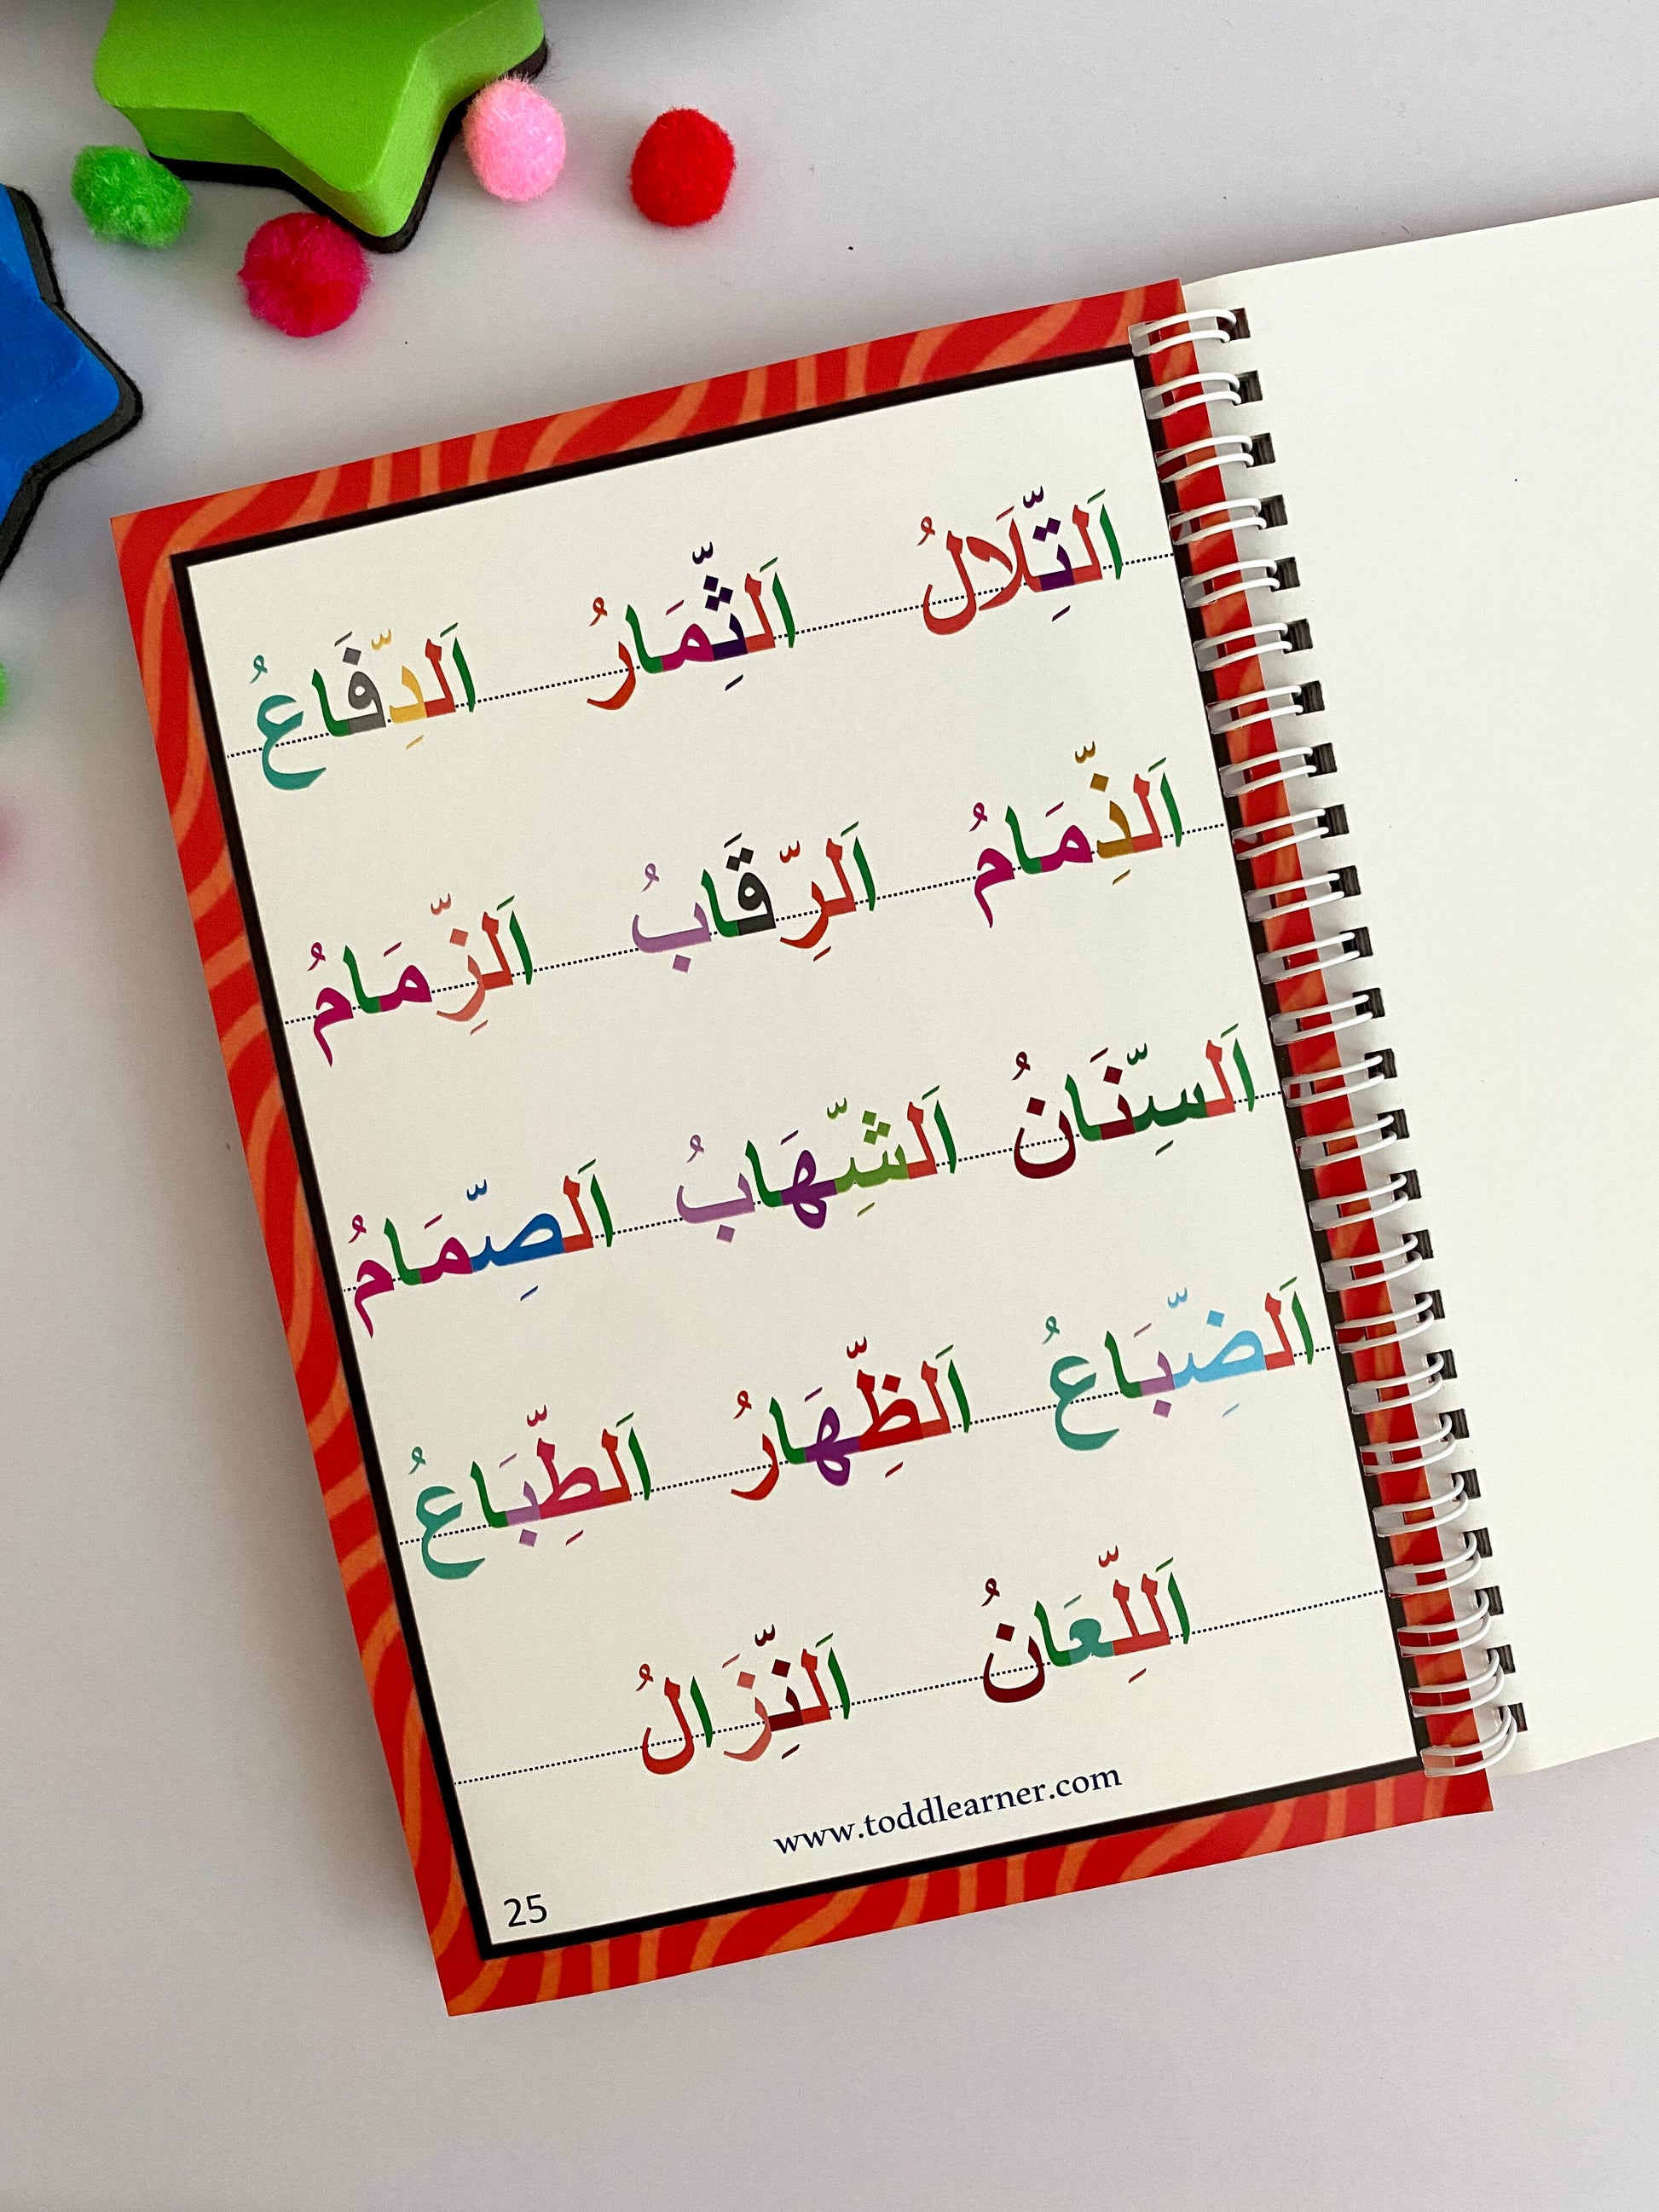 اَلتِّلَالُ اَلثِّمَارُ اَلدِّفَاعُ
اَلذِّمَامُ اَلرِّقَابُ اَلزِّمَامُ
اَلسِّنَانُ اَلشِّهَابُ اَلصِّمَامُ
اَلضِّبَاعُ اَلظِّهَارُ اَلطِّبَاعُ
اَللِّعَانُ اَلنِّزَالُ
www.toddlearner.com
25